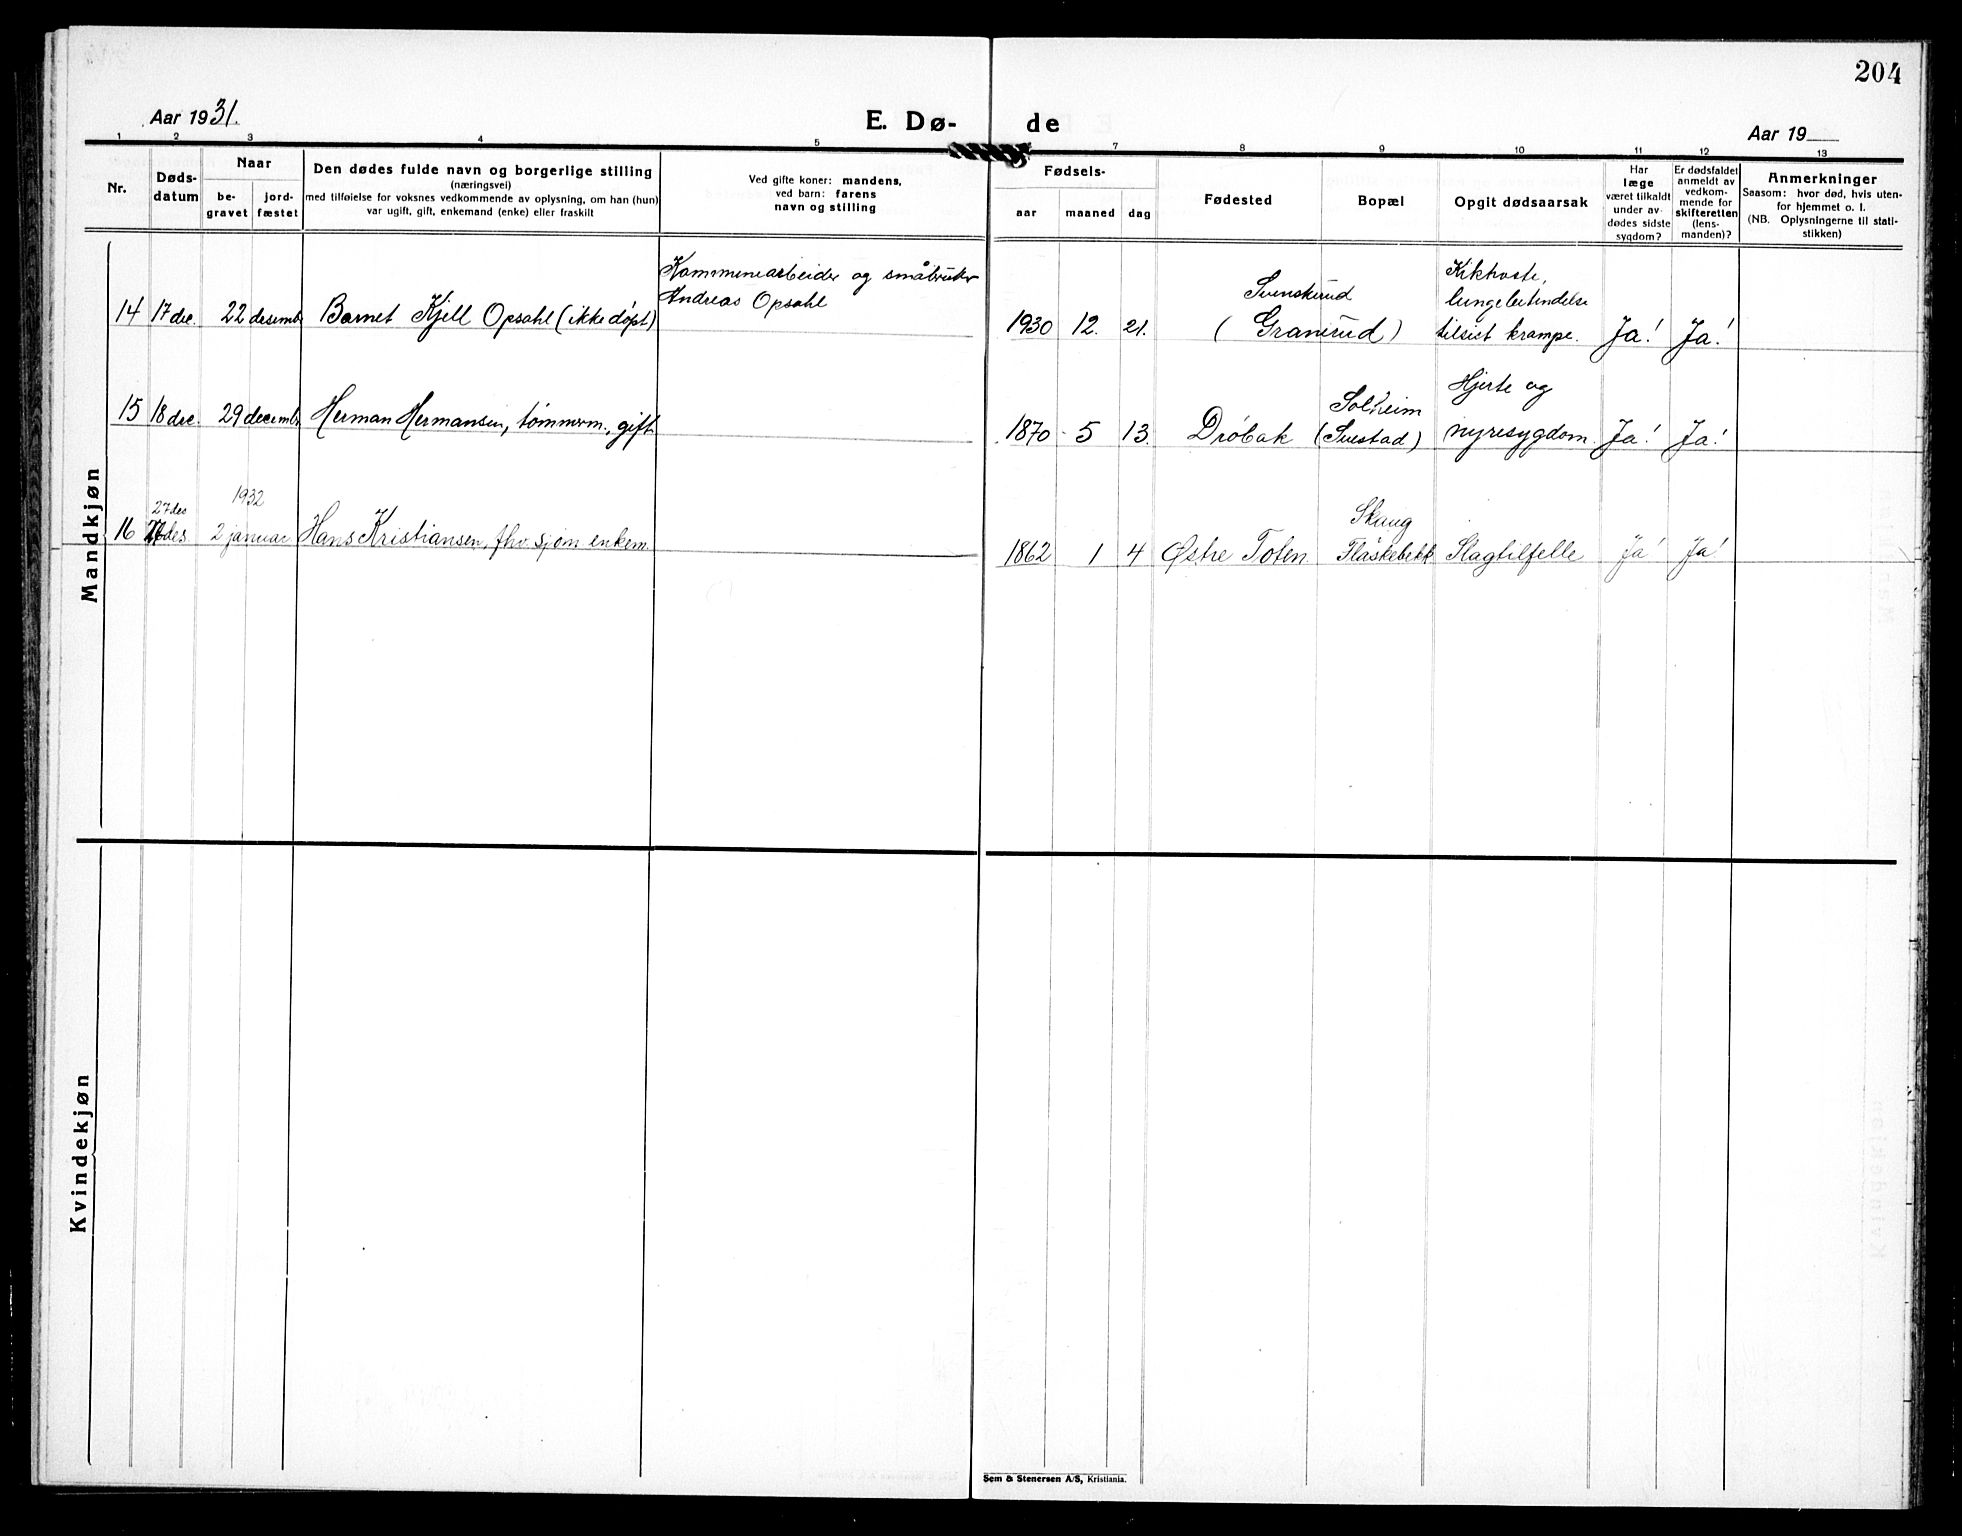 204
Aar 1931.
E. Dø-
de
Aar 19
1 2 3 4 5 7 8 9 10 11 12 13
Nr.
Døds-
datum
Naar
be-
gravet
jord-
fæstet
Den dødes fulde navn og borgerlige stilling
(næringsvei)
med tilføielse for voksnes vedkommende av oplysning, om han (hun)
var ugift, gift, enkemand (enke) eller fraskilt
Ved gifte koner: mandens,
ved barn: farens
navn og stilling
Fødsels-
aar maaned dag
Fødested
Bopæl
Opgit dødsaarsak
Har
læge
været tilkaldt
under av-
dødes sidste
sygdom?
Er dødsfaldet
anmeldt av
vedkom-
mende for
skifteretten
(lens-
manden)?
Anmerkninger
Saasom: hvor død, hvis uten-
for hjemmet o. l.
(NB. Oplysningerne til stati-
stikken)
Mandkjøn
14 17 dec. 22 desemb. Barnet Kjell Opsahl (ikke døpt)
Kommunearbeider og småbruker
Andreas Opsahl
1930 12. 21.
Svenskerud
(Granerud)
Kikhoste,
lungebetendelse
tilsist krampe.
Ja! Ja!
15 18 dec. 29 decemb. Herman Hermansen, tømmerm., gift
1870 5 13. Drøbak
Solheim
(Svestad)
Hjerte og
nyresygdom.
Ja! Ja!
27 des
1932
16 des. 2 januar Hans Kristiansen, fhv. sjøm enkem.
1862 1 4 Østre Toten.
Skaug
Flaskebekk
Slagtilfelle
Ja! Ja!
Kvindekjøn
Sem & Stenersen A/S, Kristiania.